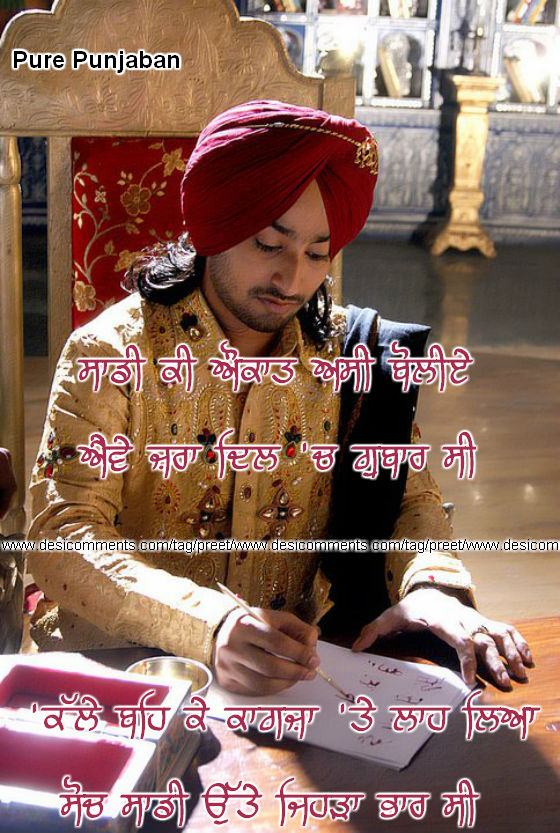 Pure Punjaban
ਸਾਡੀ ਕੀ ਔਕਾਤ ਅਸੀ ਬੋਲੀਏ
ਐਵੇ ਜ਼ਰਾ ਦਿਲ 'ਚ ਗੁਬਾਰ ਸੀ
www.desicomments.com/tag/preet/www.desicomments.com/tag/preet/www.desicom
'ਕੱਲੇ ਬਹਿ ਕੇ ਕਾਗਜ਼ਾ 'ਤੇ ਲਾਹ ਲਿਆ
ਸੋਚ ਸਾਡੀ ਉੱਤੇ ਜਿਹੜਾ ਭਾਰ ਸੀ